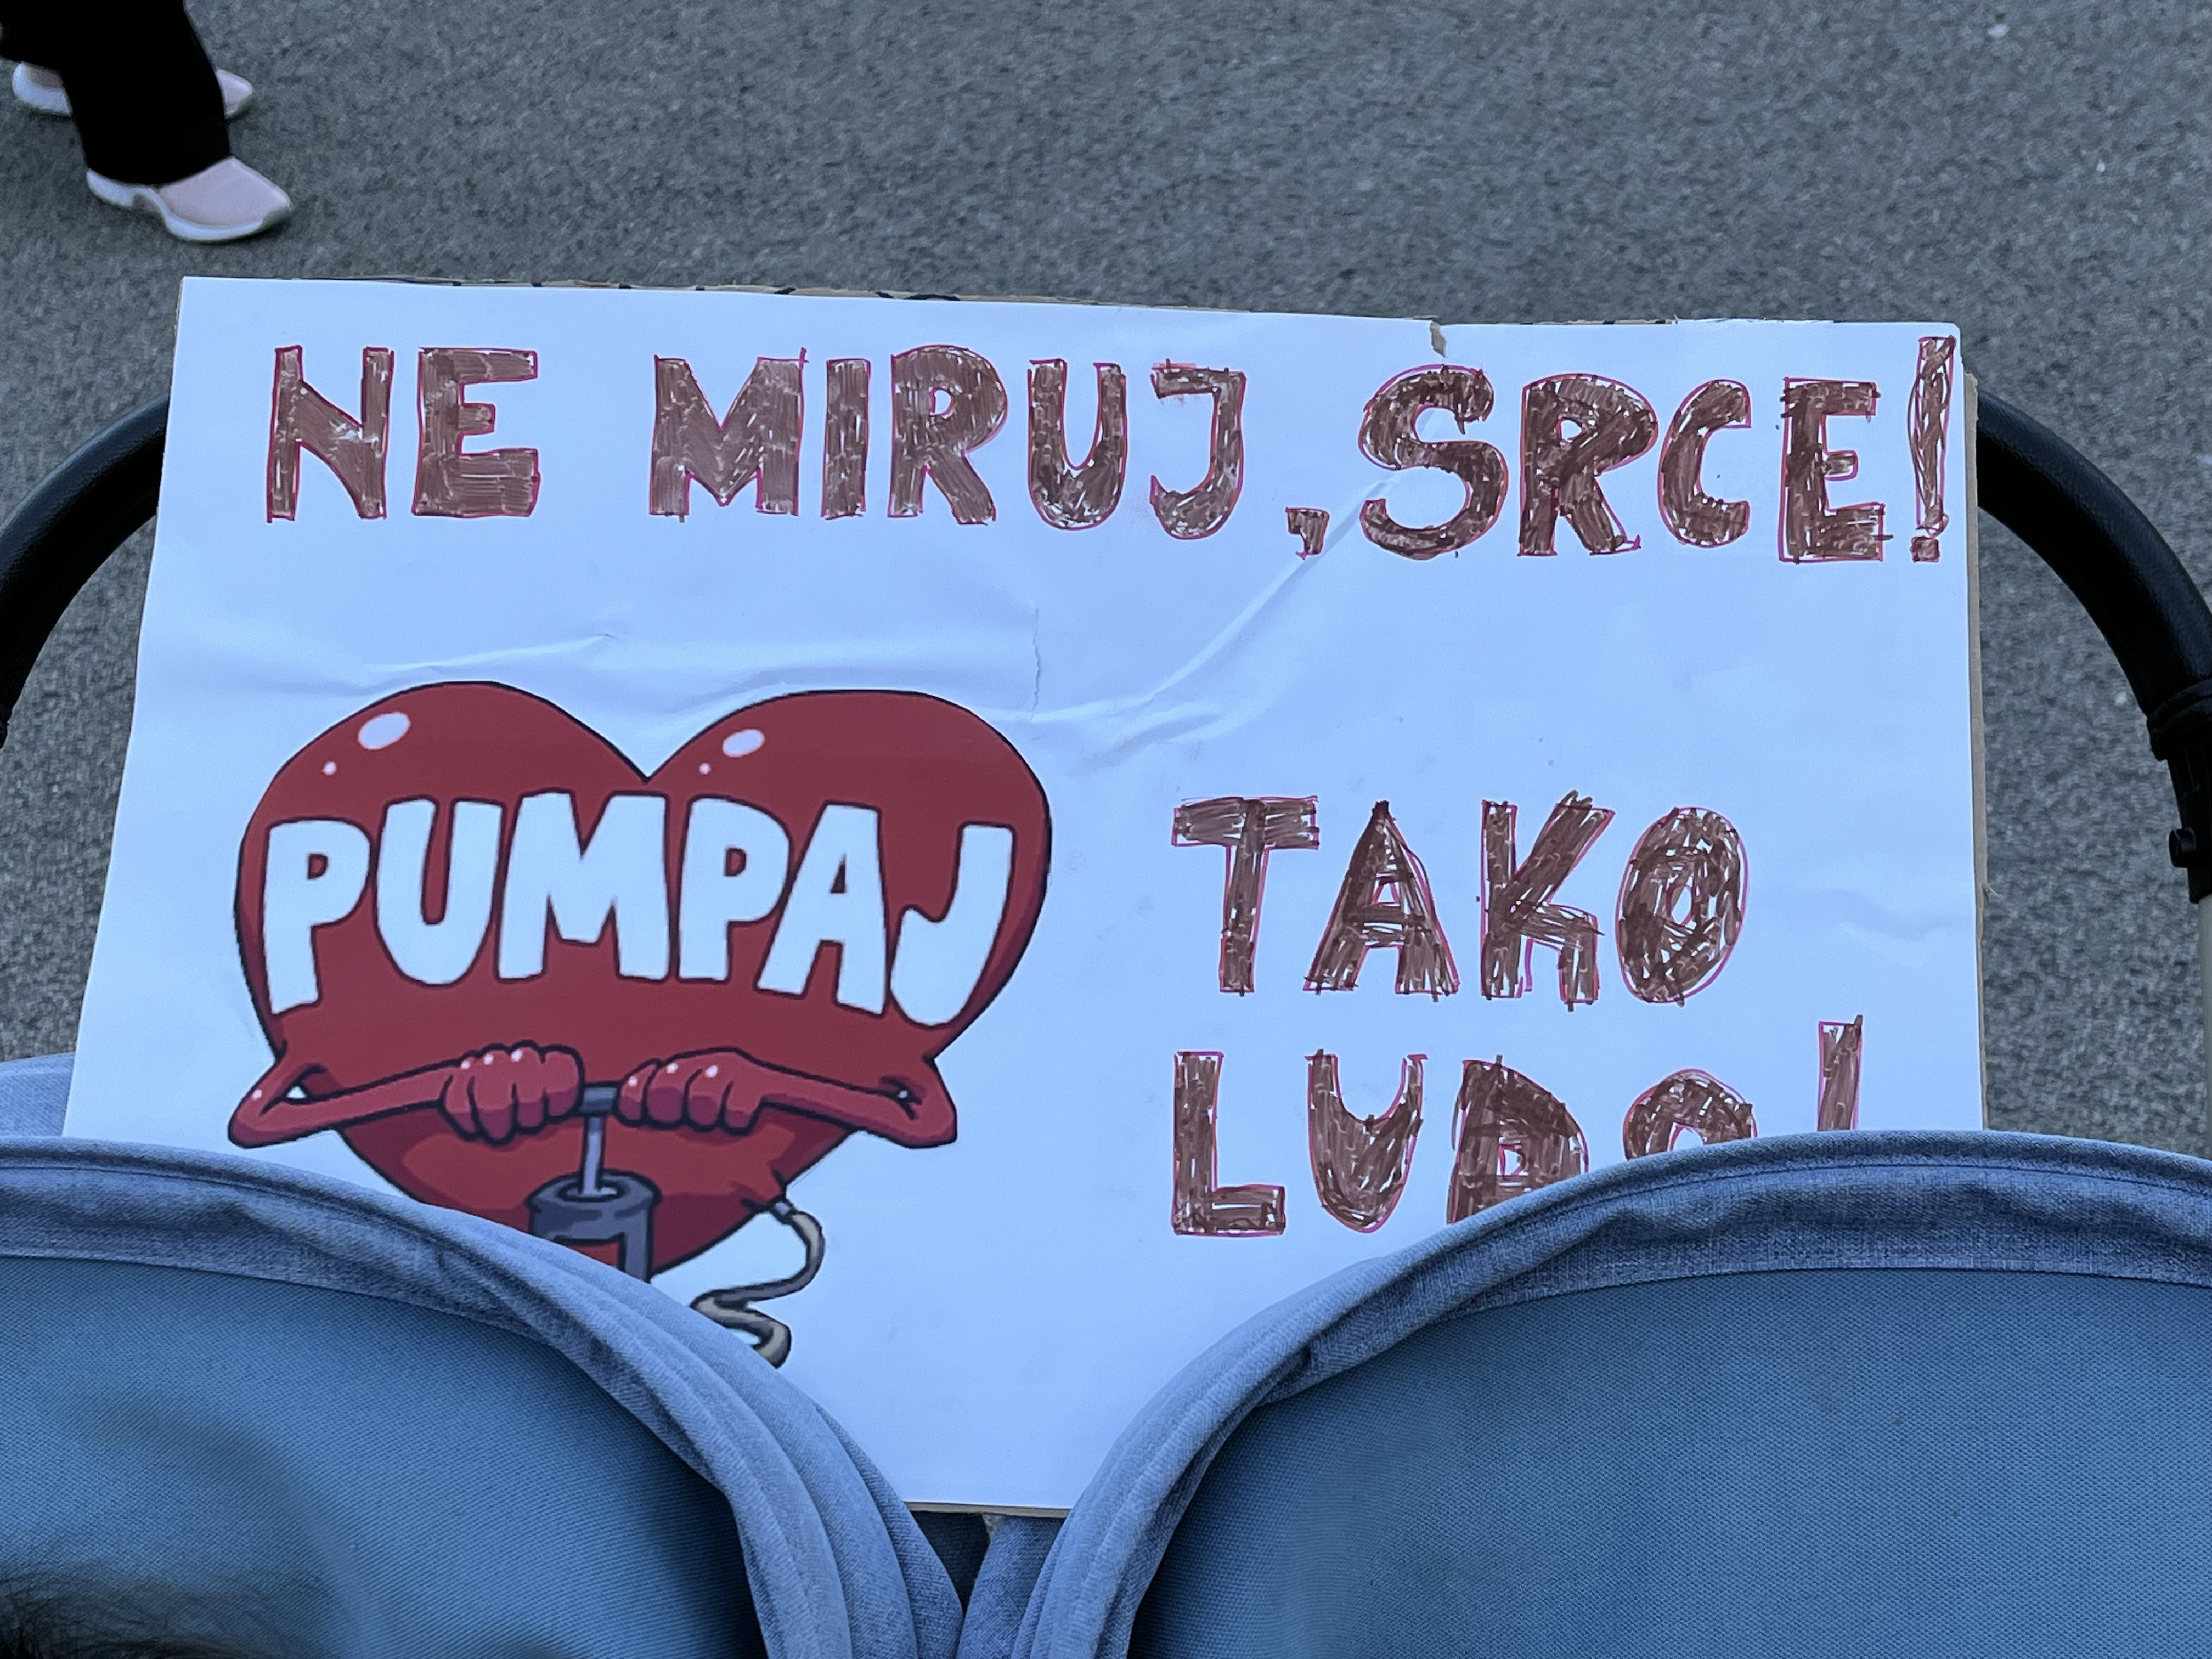 NE MIRUJ, SRCE!
PUMPAJ
TAKO
LUDO!